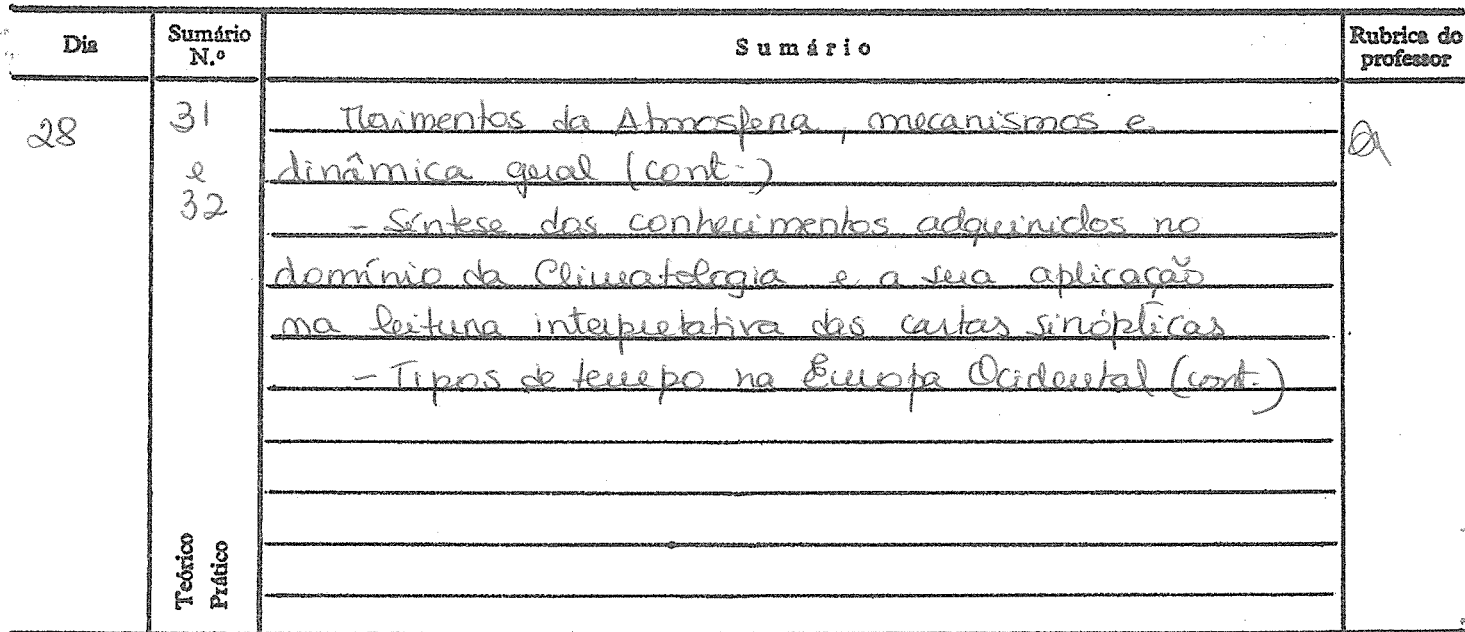 Dia Sumário N.º Sumário Rubrica do professor
28 31 e 32
Movimentos da Atmosfera, mecanismos e
dinâmica geral (cont.)
- Síntese dos conhecimentos adquiridos no
domínio da Climatologia e a sua aplicação
na leitura interpretativa das cartas sinópticas
- Tipos de tempo na Europa Ocidental (cont.)
Teórico
Prático